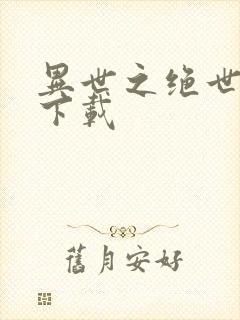 異世之绝世
下載
舊月安好